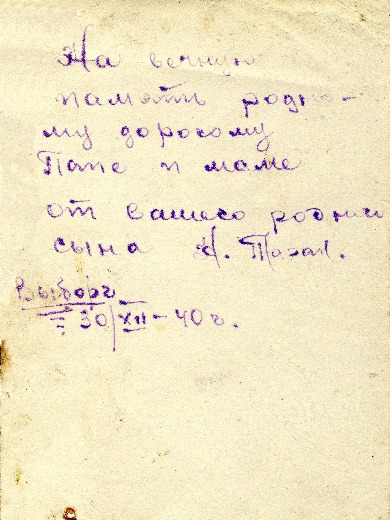 На вечную
память родно-
му дорогому
Папе и маме
от вашего родного
сына Н.
Выборг
30/XII – 40 г.